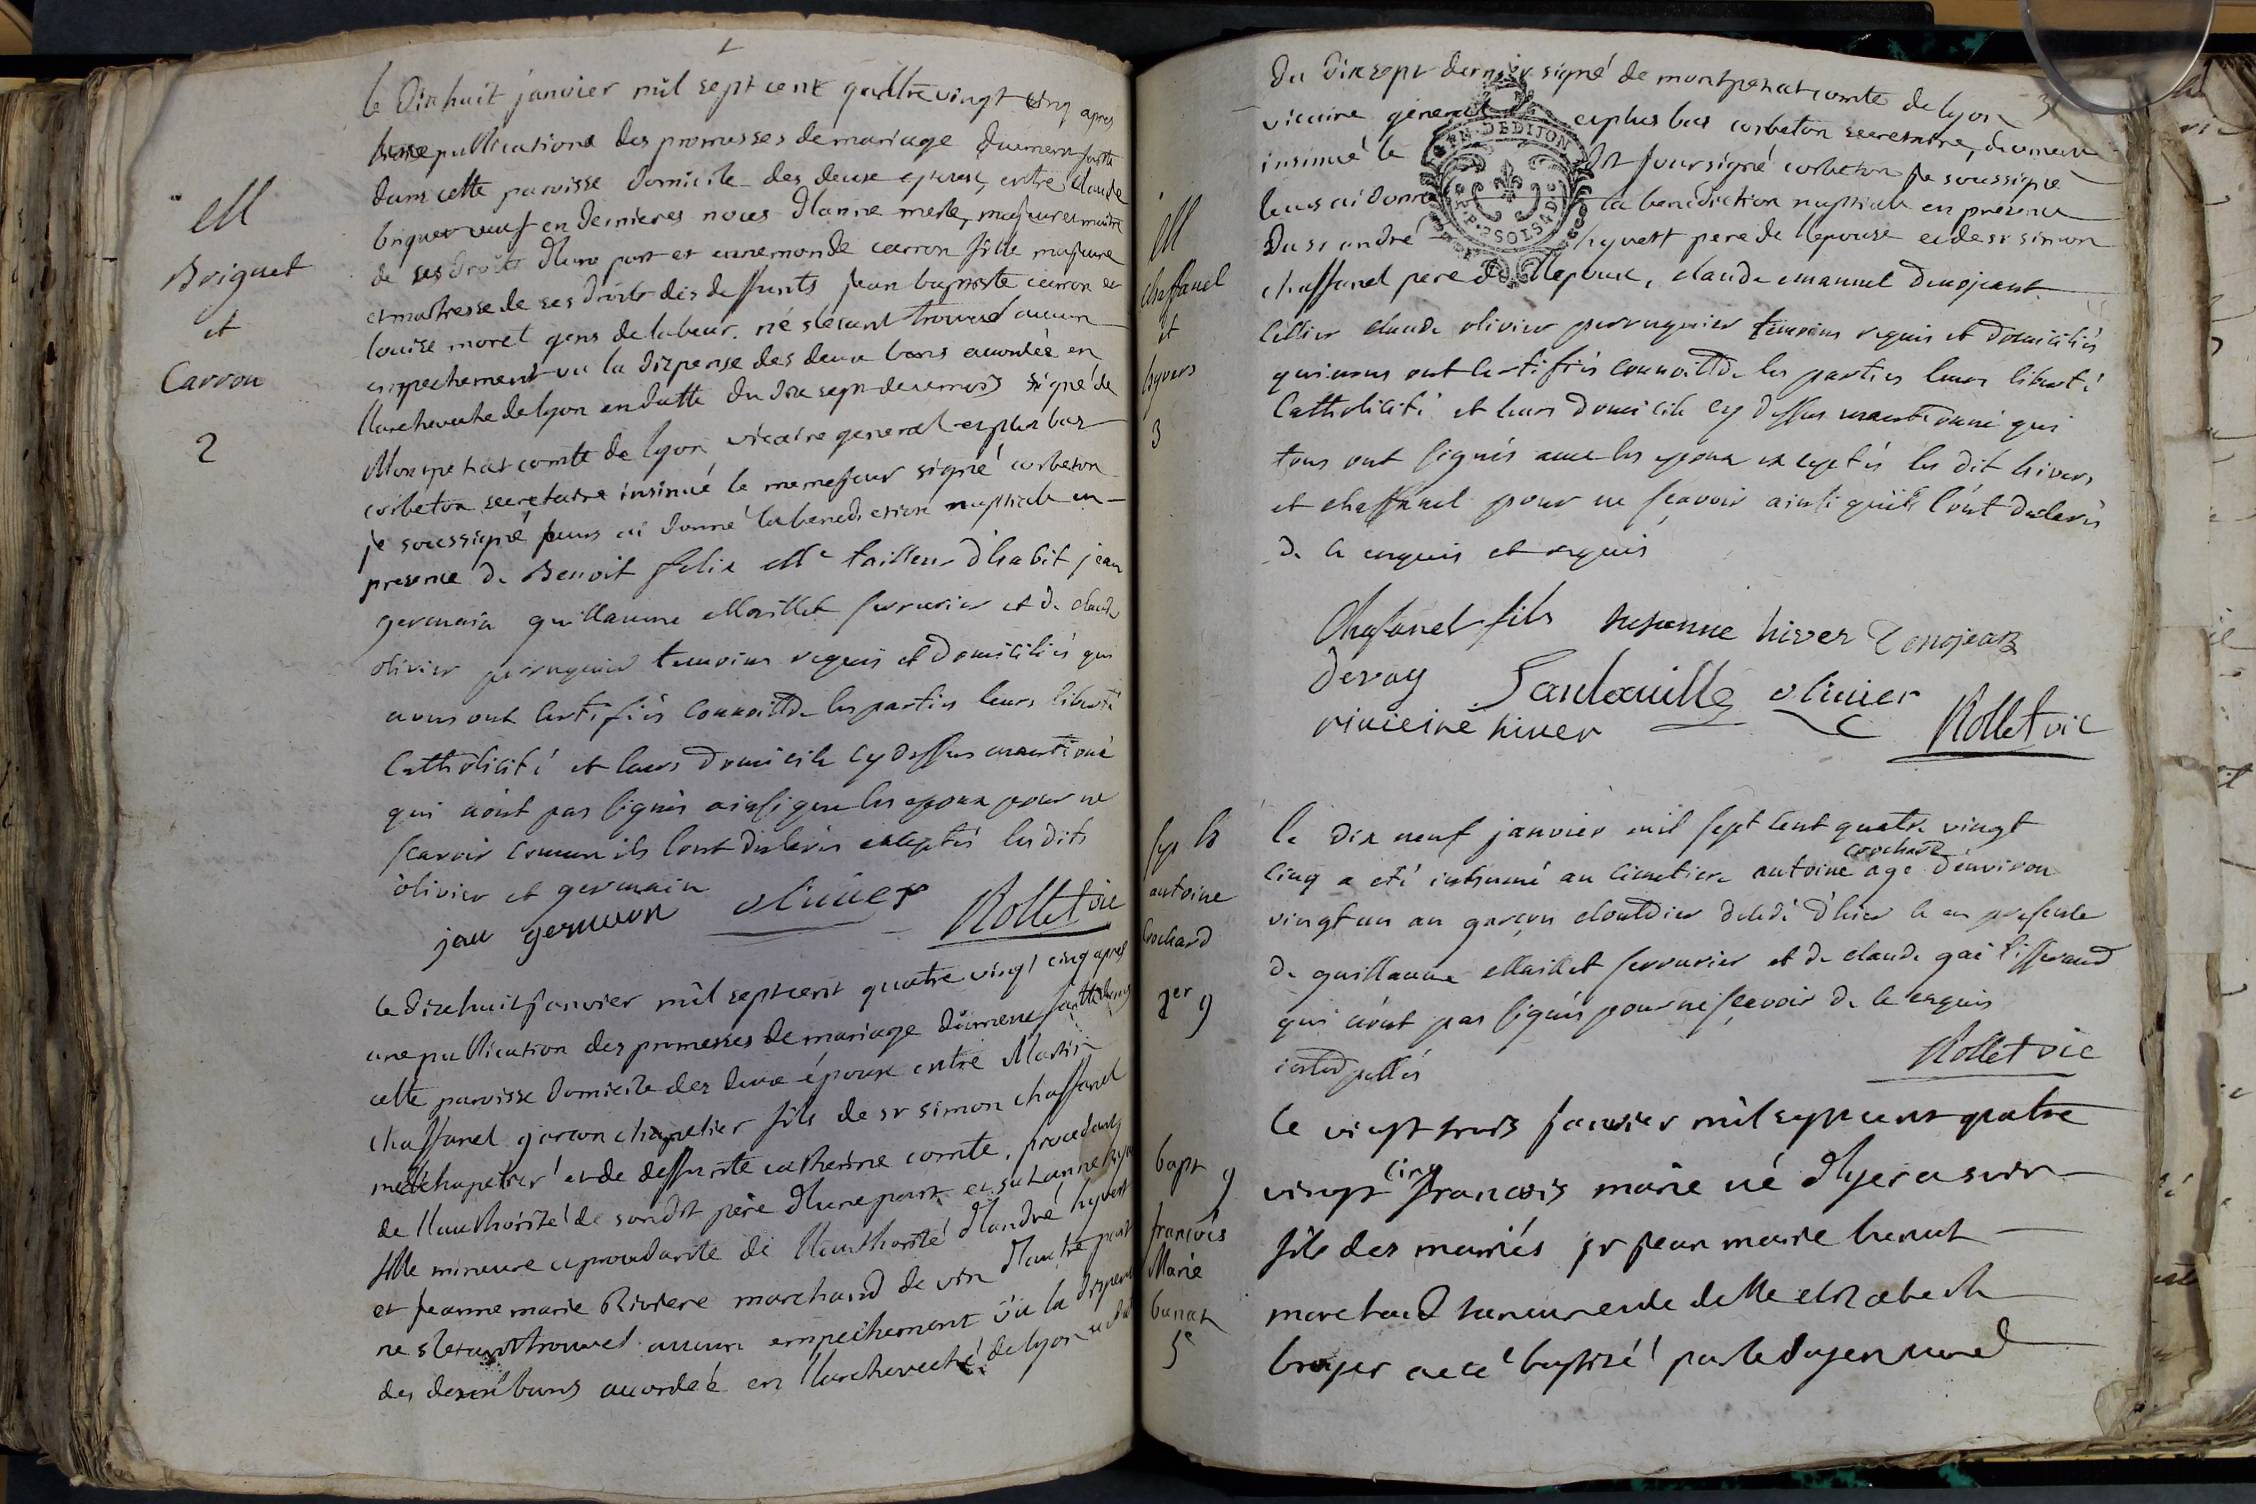 M
Briguet
et
Carron
2
le dixhuit janvier mil sept cent quattre vingt cinq apres
une publications des promesses de mariage duement faitte
dans cette paroisse domicile des deux epoux, entre claude
briguet veuf en dernieres noces d'anne merle, majeur et maitre
de ses droits d'une part et annemonde carron fille majeure
et maitresse de ses droits des deffunts jean baptiste carron et
louise morel gens de labeur. ne s'etant trouvé aucun
empechement vu la dispense des deux bans accordée en
l'archeveche de lyon en datte du dix sept de ce mois signé de
Montpezat comte de lyon vicaire general et plus bas
corbeton secretaire insinué le meme jour signé corbeton
je soussigné leurs ai donné la benediction nuptiale en
presence de Benoit felix Me tailleur d'habit jean
germain guillaume Maillet serrurier et de claude
olivier perruquier temoins requis et domiciliés qui
nous ont certifiés connoittre les parties leurs liberté
Catholicité et leurs domicile cy dessus mentioné
qui n'ont pas signés ainsi que les epoux pour ne
scavoir comme ils l'ont déclarés exceptés les dits
olivier et germain
jan germain olivier Rollet vic
le dixhuit janvier mil sept cent quatre vingt cinq apres
une publication des promesses de mariage düment faitte dans
cette paroisse domicile des deux époux entre Martin
chaffanel garcon chapelier fils de sr simon chaffanel
me chapelier et de deffunte catherine comte, procedant
de l'authorité de son dit père d'une part et suzanne hyver
fille mineure et procedante de l'authorité d'andré hyvert
et jeanne marie Riviere marchand de vin d'autre part
ne s'etant trouvé aucun empechement vu la dispense
des deux bans accordée en l'archeveché de lyon en date
3
du dix sept dernier signé de montpezat comte de lyon
vicaire general et plus bas corbeton secretaire, duement
insinué le dit jour signé corbeton je soussigné
leurs ai donné la benediction nuptiale en presence
du sr andré hyvert pere de l'epouse et de sr simon
chaffanel pere de l'epoux, claude emanuel denojeant
Cellier claude olivier perruquier temoins requis et domiciliés
qui nous ont certifiés connoittre les parties leurs liberté
Catholicité et leurs domicile cy dessus mentionné qui
tous ont signés avec les epoux exceptés les dit hivers
et chaffanel pour ne scavoir ainsi qu'ils l'ont declarés
de ce enquis et requis
M
chaffanel
et
hyvers
3
EN. DE DIJON
Chafanel fils susanne hiver Denojean
Devay Santoville olivier
riviere hiver Rollet vic
sep
antoine
Crochard
1er 9
le dix neuf janvier mil sept cent quatre vingt
cinq a eté inhumé au cimetiere antoine crochard agé d'environ
vingt un an garçon cloutier decedé d'hier le en presence
de guillaume Maillet serrurier et de claude gai tisserand
qui n'ont pas signés pour ne scavoir de ce enquis
interpellés
Rollet vic
bapt 9
françois
Marie
bunat
5e
le vingt trois janvier mil sept cent quatre
vingt cinq françois marie né d'hyer a soir
fils des mariés sr jean marie bunat
marchand taneur et de delle elizabeth
broyer a eté baptisé par le soussigné